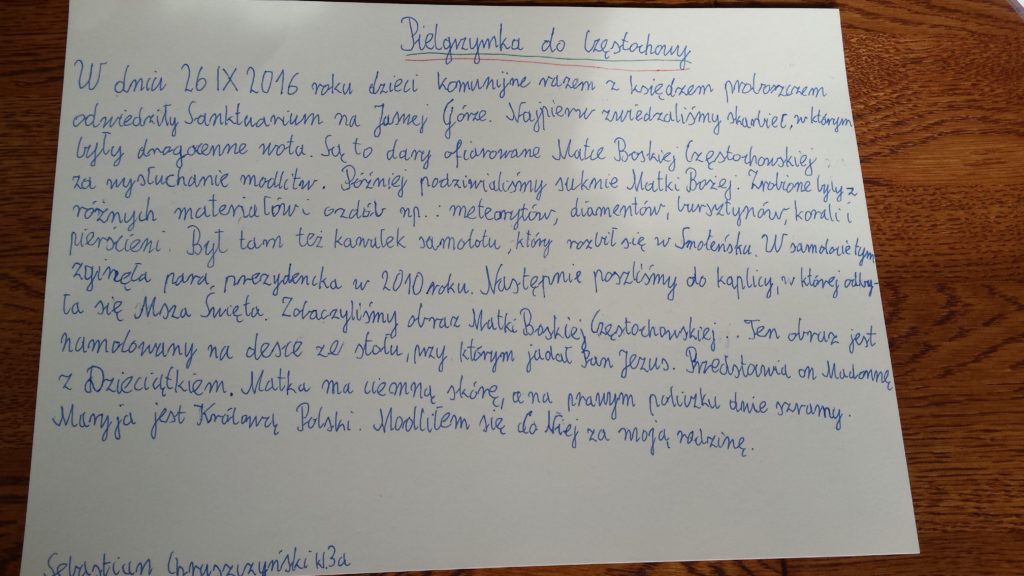 Pielgrzymka do Częstochowy
W dniu 26 IX 2016 roku dzieci komunijne razem z księdzem proboszczem
odwiedziły Sanktuarium na Jasnej Górze. Najpierw zwiedzaliśmy skarbiec, w którym
były drogocenne wota. Są to dary ofiarowane Matce Boskiej Częstochowskiej
za wysłuchanie modlitw. Później podziwialiśmy suknie Matki Bożej. Zrobione były z
różnych materiałów i ozdób np.: meteorytów, diamentów, bursztynów, korali i
pierścieni. Był tam też kawałek samolotu, który rozbił się w Smoleńsku. W samolocie tym
zginęła para prezydencka w 2010 roku. Następnie poszliśmy do kaplicy, w której odby-
ła się Msza Święta. Zobaczyliśmy obraz Matki Boskiej Częstochowskiej. Ten obraz jest
namolowany na desce ze stołu, przy którym jadał Pan Jezus. Przedstawia on Madonnę
z Dzieciątkiem. Matka ma ciemną skórę, a na prawym policzku dwie szramy.
Maryja jest Królową Polski. Modliłem się do Niej za moją rodzinę.
Sebastian Chruszczyński kl.3a